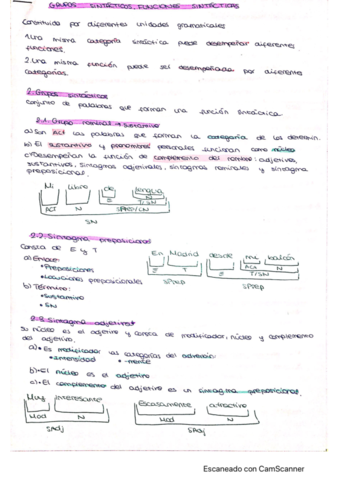 GRUPOS SINTÁCTICOS, FUNCIONES SINTÁCTICAS
Constituida por diferentes unidades gramaticales
1. Una misma categoría sintáctica puede desempeñar diferentes
funciones.
2. Una misma función puede ser desempeñada por diferentes
categorías.
2. Grupos sintácticos
conjunto de palabras que forman una función sintáctica
2.1. Grupo nominal + sustantivo
a) Son Act las palabras que forman la categoría de los determin.
b) El sustantivo y pronombres personales funcionan como núcleo
c) Desempeñan la función de complemento del nombre: adjetivos,
sustantivos, sintagmas adjetivales, sintagmas nominales y sintagma
preposicional.
Mi libro de lengua
E N
T/SN
Act N SPREP/CN
SN
2.2. Sintagma preposicional
Consta de E y T
a) Enlace:
• Preposiciones
• Locuciones preposicionales
b) Término:
• Sustantivo
• SN
En Madrid
E T
SPrep
desde mi balcón
Act N
E T/SN
SPrep
2.3. Sintagma adjetival
Su núcleo es el adjetivo y consta de modificador, núcleo y complemento
del adjetivo.
a) • Es modificador las categorías del adverbio:
• Intensidad • -mente
b) • El núcleo es el adjetivo
c) • El complemento del adjetivo es un sintagma preposicional.
Muy interesante
Mod N
SAdj
Escasamente atractivo
Mod N
SAdj
Escaneado con CamScanner